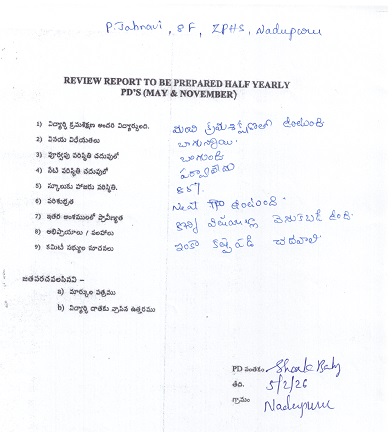 P. Jahnavi, 8F, ZPHS, Nadupuru
REVIEW REPORT TO BE PREPARED HALF YEARLY
PD'S (MAY & NOVEMBER)
1) విద్యార్థి క్రమశిక్షణ అందరి విద్యార్థులది. మంచి క్రమశిక్షణతో ఉంటుంది
2) వినయ విధేయతలు బాగున్నాయి
3) పూర్వపు పరిస్థితి చదువులో బాగుంది
4) నేటి పరిస్థితి చదువులో పర్వాలేదు
5) స్కూలుకు హాజరు పరిస్థితి. 85%
6) పరిశుభ్రత Neat గా ఉంటుంది.
7) ఇతర అంశములతో ప్రావీణ్యత కొన్ని విషయాల్లో వెనుకబడి ఉంది.
8) అభిప్రాయాలు / సలహాలు
9) కమిటీ సభ్యుల సూచనలు ఇంకా కష్టపడి చదవాలి
జతపరచవలసినవి -
a) మార్కుల పత్రము
b) విద్యార్థి దాతకు వ్రాసిన ఉత్తరము
PD సంతకం
తేది. 5/2/26
గ్రామం Nadupuru